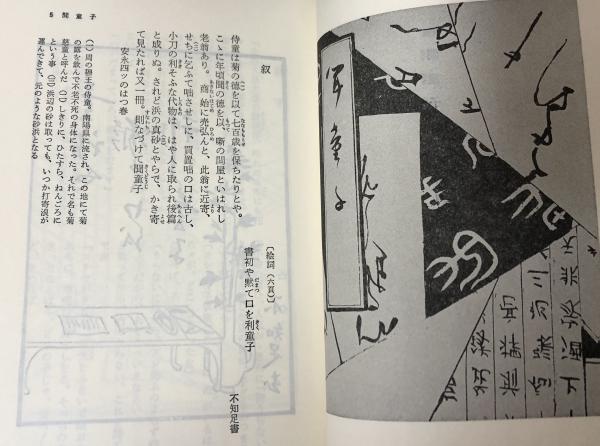 聞童子
叙
侍童は菊の徳を以て七百歳を保ちたりとや。
こゝに年頃聞の徳を以、噺の問屋といはれし
老翁あり。商始に売弘んと、此翁に近寄、
せちに乞ふて咄させしに、買置咄の口は古し、
小刀の利そふな代物は、はや人に取られ後篇
と成りぬ。されど浜の真砂とやらで、かき寄
て見たれば又一冊。則なづけて聞童子
安永四ッのはつ春
〔絵詞(六頁)〕
書初や黙て口を利童子
不知足書
(一) 周の穆王の侍童。南陽県に流され、この地にて菊
の露を飲んで不老不死の身体になった。それで名も菊
慈童と呼んだ (二) しきりに、ひたすら、ねんごろに
という事 (三) 浜辺の砂は取っても、いつか打寄浪が
運んできて、元のような砂浜となる
5 聞童子